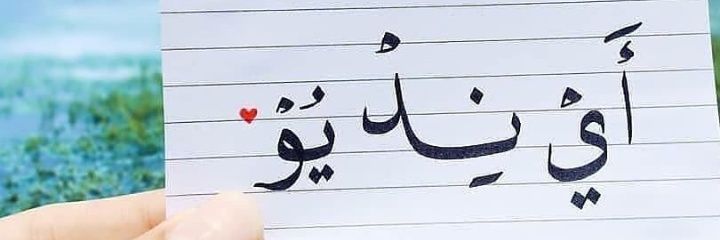 أَيْ نِدُ يُوْ